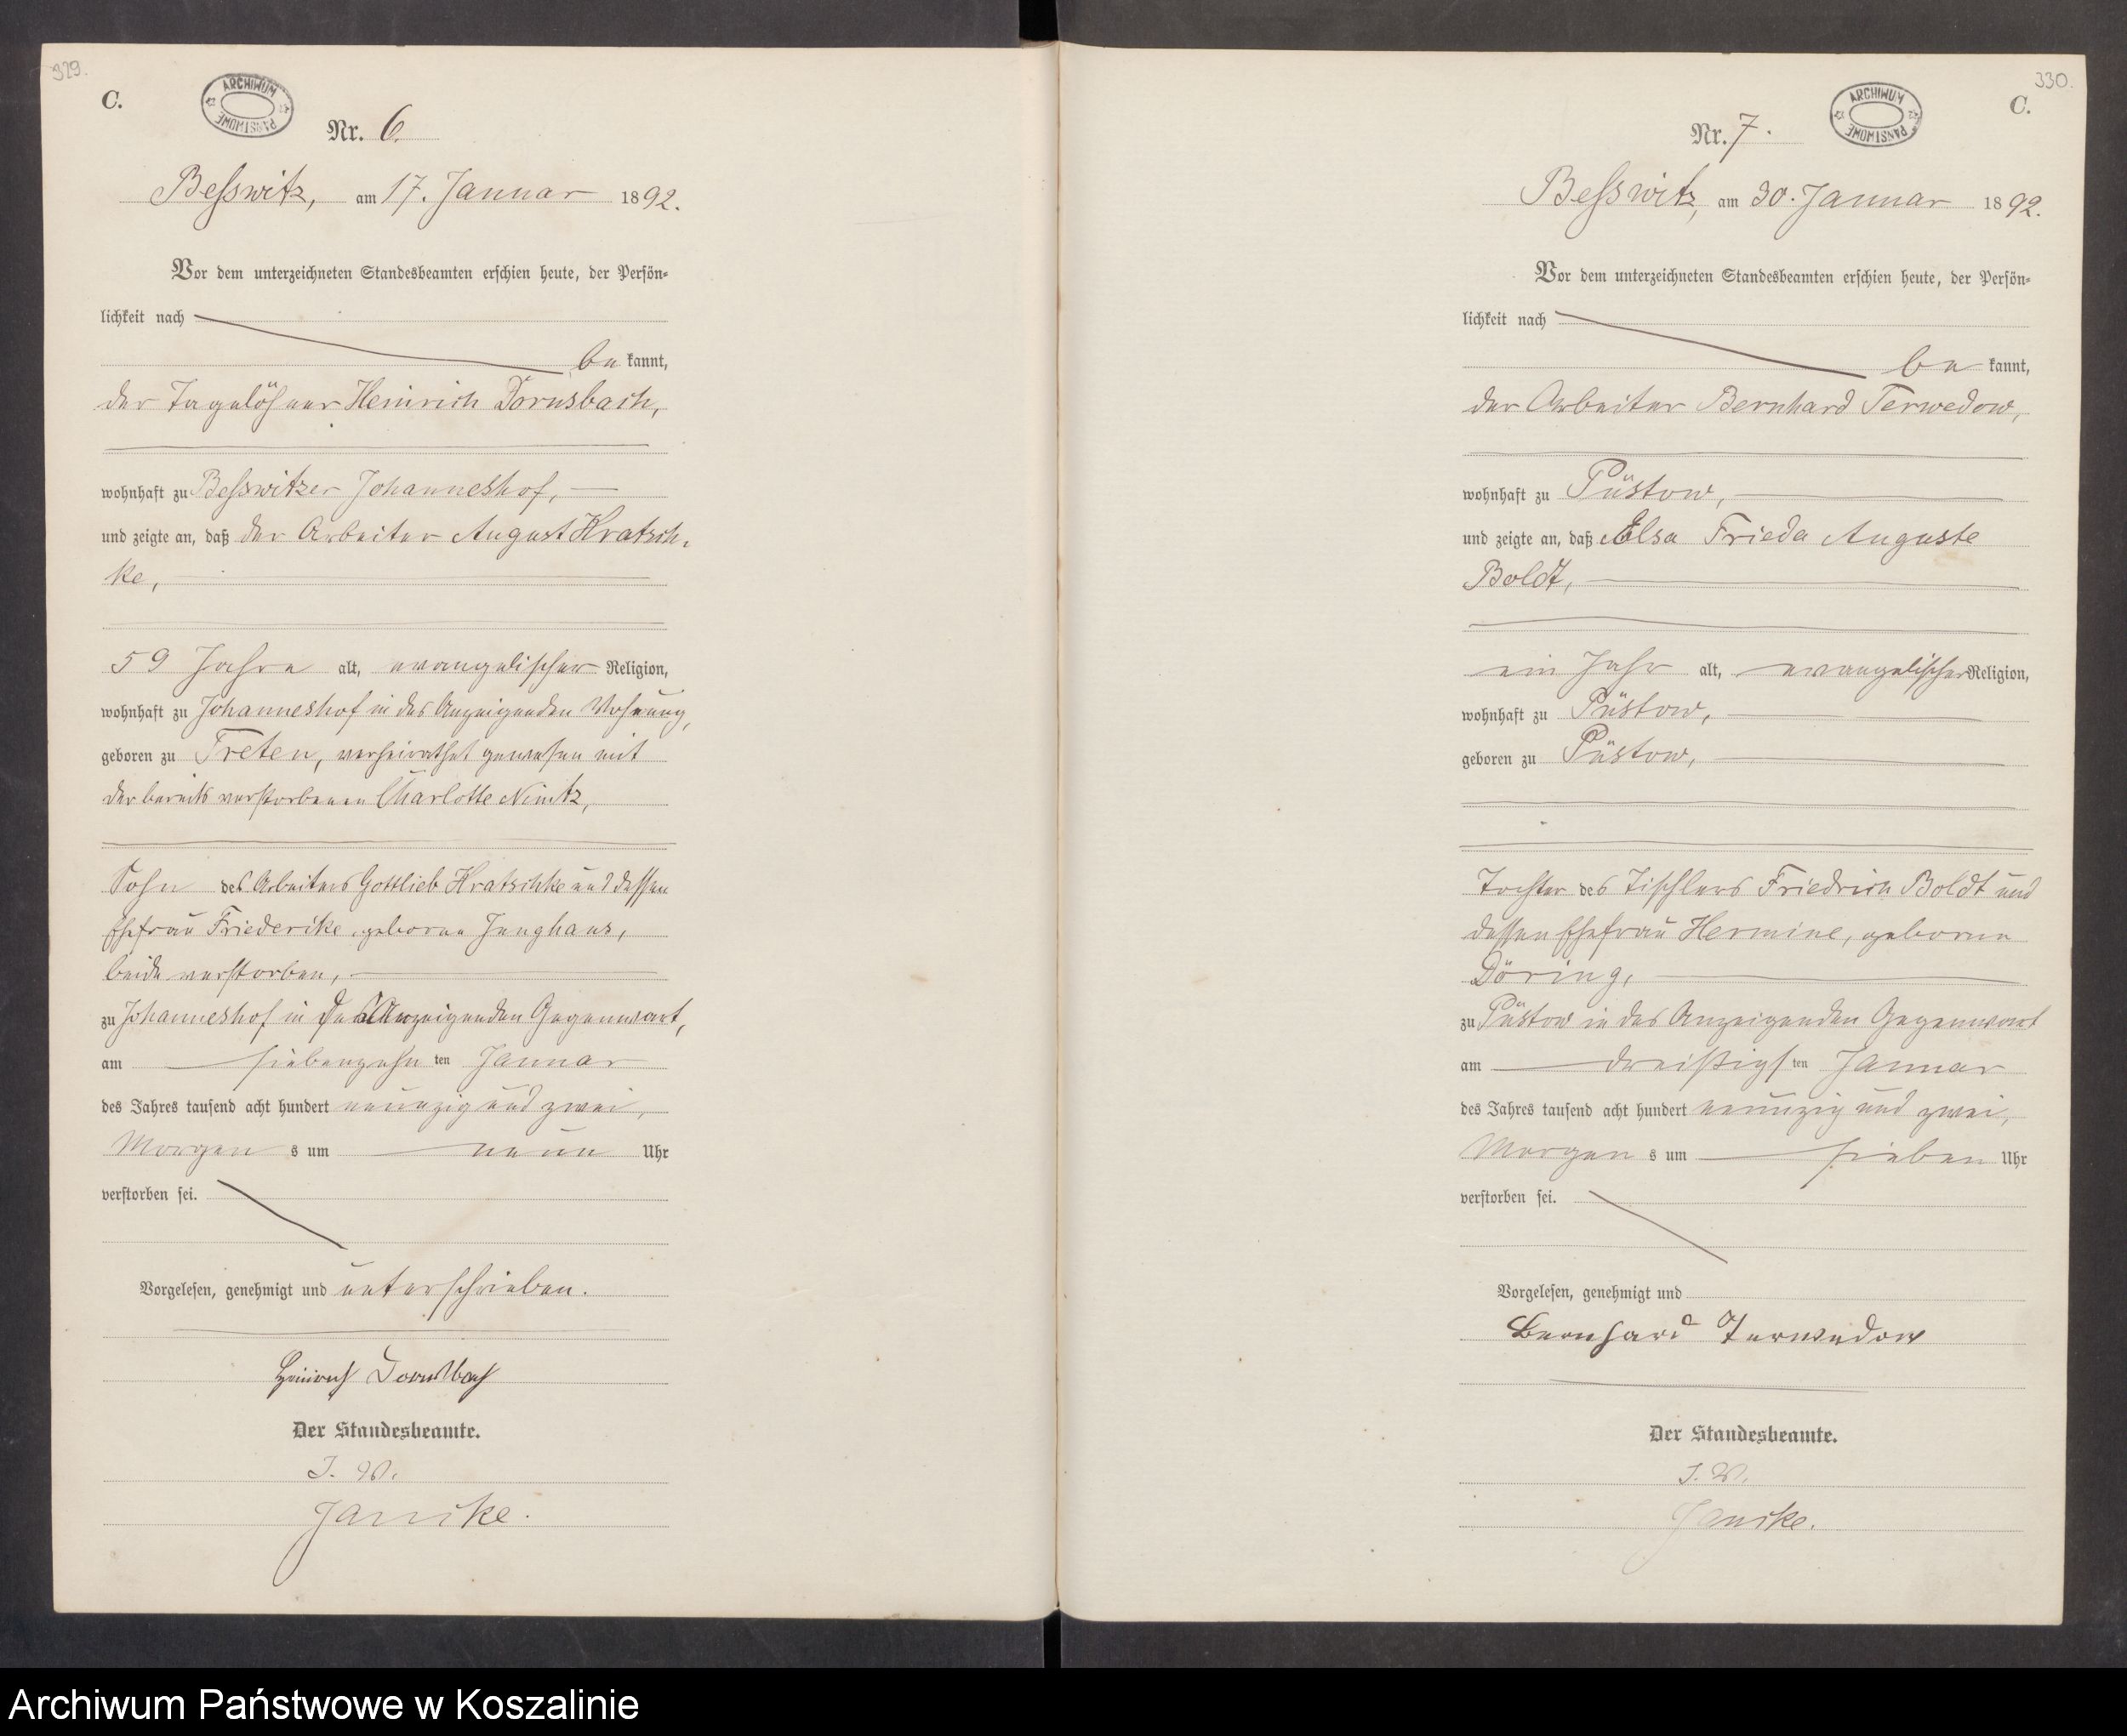 329.
C.
ARCHIWUM PAŃSTWOWE
Nr. 6.
Besswitz, am 17. Januar 1892.
Vor dem unterzeichneten Standesbeamten erschien heute, der Persön-
lichkeit nach
be kannt,
der Tagelöhner Heinrich Dornsbach,
wohnhaft zu Besswitzer Johanneshof,
und zeigte an, daß der Arbeiter August Kratsch-
ke,
59 Jahre alt, evangelischer Religion,
wohnhaft zu Johanneshof in des Anzeigenden Wohnung,
geboren zu Treten, verheirathet gewesen mit
der bereits verstorbenen Charlotte Nimtz,
Sohn des Arbeiters Gottlieb Kratschke und dessen
Ehefrau Friederike, geborne Junghans,
beide verstorben,
zu Johanneshof in des Anzeigenden Gegenwart,
am siebenzehn ten Januar
des Jahres tausend acht hundert neunzig und zwei,
Morgen s um neun Uhr
verstorben sei.
Vorgelesen, genehmigt und unterschrieben.
Heinrich Dornsbach
Der Standesbeamte.
J. V.
Janike.
330.
C.
ARCHIWUM PAŃSTWOWE
Nr. 7.
Besswitz, am 30. Januar 1892.
Vor dem unterzeichneten Standesbeamten erschien heute, der Persön-
lichkeit nach
be kannt,
der Arbeiter Bernhard Terwedow,
wohnhaft zu Püstow,
und zeigte an, daß Elsa Frieda Auguste
Boldt,
ein Jahr alt, evangelischer Religion,
wohnhaft zu Püstow,
geboren zu Püstow,
Tochter des Tischlers Friedrich Boldt und
dessen Ehefrau Hermine, geborne
Döring,
zu Püstow in des Anzeigenden Gegenwart
am dreißigs ten Januar
des Jahres tausend acht hundert neunzig und zwei,
Morgen s um sieben Uhr
verstorben sei.
Vorgelesen, genehmigt und
Bernhard Terwedow
Der Standesbeamte.
J. V.
Janike.
Archiwum Państwowe w Koszalinie